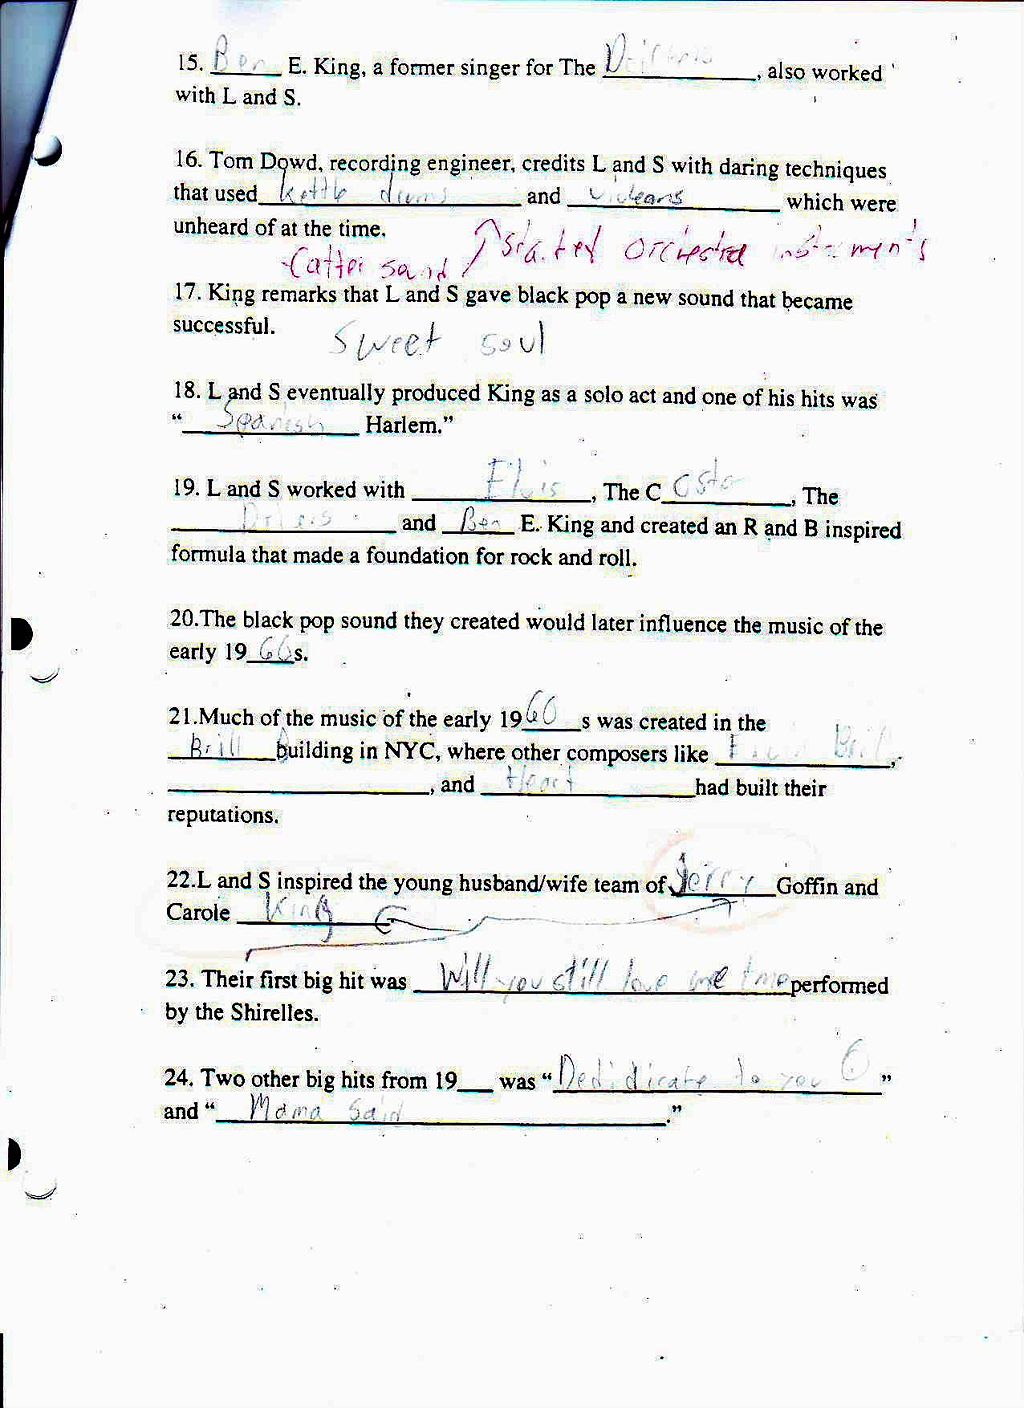 15. Ben E. King, a former singer for The ____, also worked
with L and S.
16. Tom Dowd, recording engineer, credits L and S with daring techniques
that used kettle drums and violeans which were
unheard of at the time.
started orchestra instruments
Catter sound
17. King remarks that L and S gave black pop a new sound that became
successful.
Sweet soul
18. L and S eventually produced King as a solo act and one of his hits was
“Spanish Harlem.”
19. L and S worked with Elvis, The C osta, The
____ and Ben E. King and created an R and B inspired
formula that made a foundation for rock and roll.
20.The black pop sound they created would later influence the music of the
early 1960s.
21.Much of the music of the early 1960s was created in the
Brill building in NYC, where other composers like ____ Bril,
____, and Heart had built their
reputations.
22.L and S inspired the young husband/wife team of Jerry Goffin and
Carole King
23. Their first big hit was Will you still love me tmo performed
by the Shirelles.
24. Two other big hits from 19___ was “Dedidicate to you 6”
and “Mama Said.”